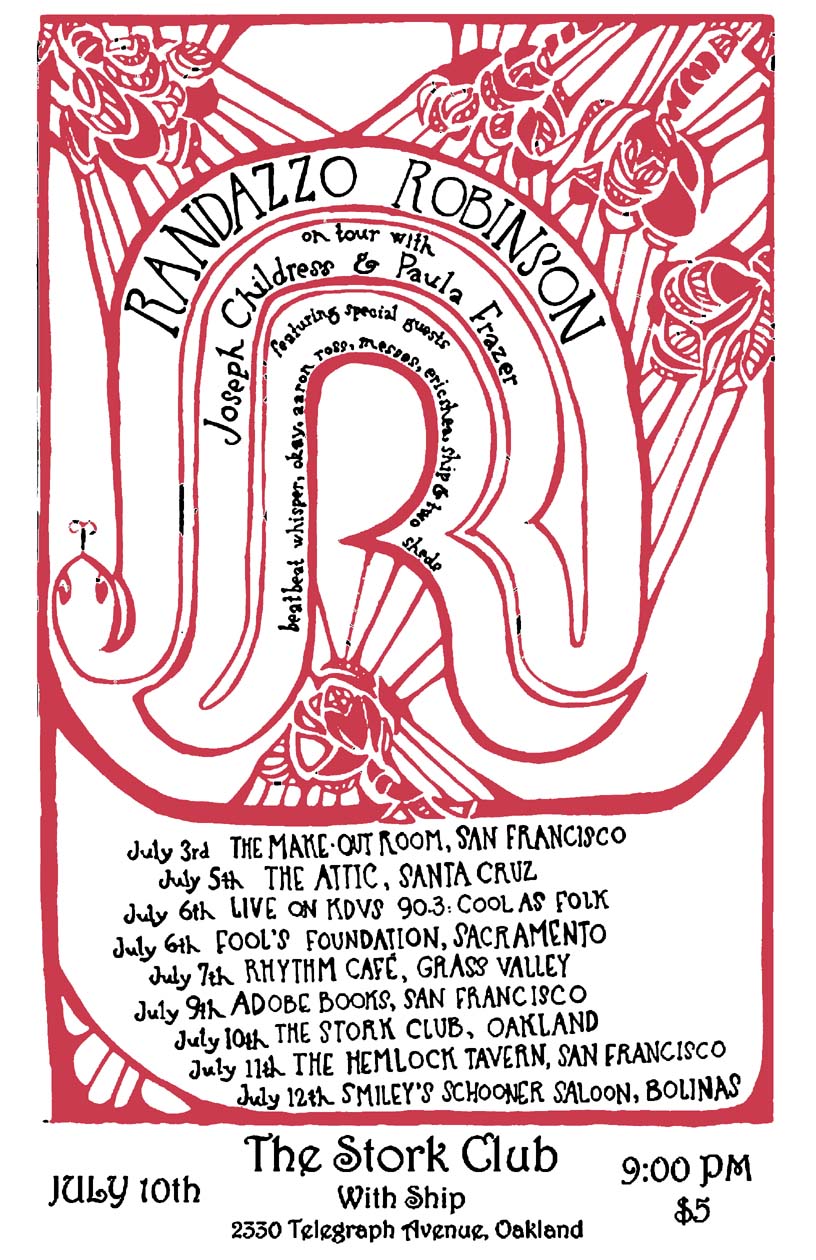 RANDAZZO ROBINSON
on tour with
Joseph Childress & Paula Frazer
featuring special guests
beatbeat whisper, okay, aaron ross, messes, eric shea, ship & two sheds
July 3rd THE MAKE-OUT ROOM, SAN FRANCISCO
July 5th THE ATTIC, SANTA CRUZ
July 6th LIVE ON KDVS 90.3: COOL AS FOLK
July 6th FOOL'S FOUNDATION, SACRAMENTO
July 7th RHYTHM CAFÉ, GRASS VALLEY
July 9th ADOBE BOOKS, SAN FRANCISCO
July 10th THE STORK CLUB, OAKLAND
July 11th THE HEMLOCK TAVERN, SAN FRANCISCO
July 12th SMILEY'S SCHOONER SALOON, BOLINAS
The Stork Club
JULY 10th
With Ship
9:00 PM
$5
2330 Telegraph Avenue, Oakland